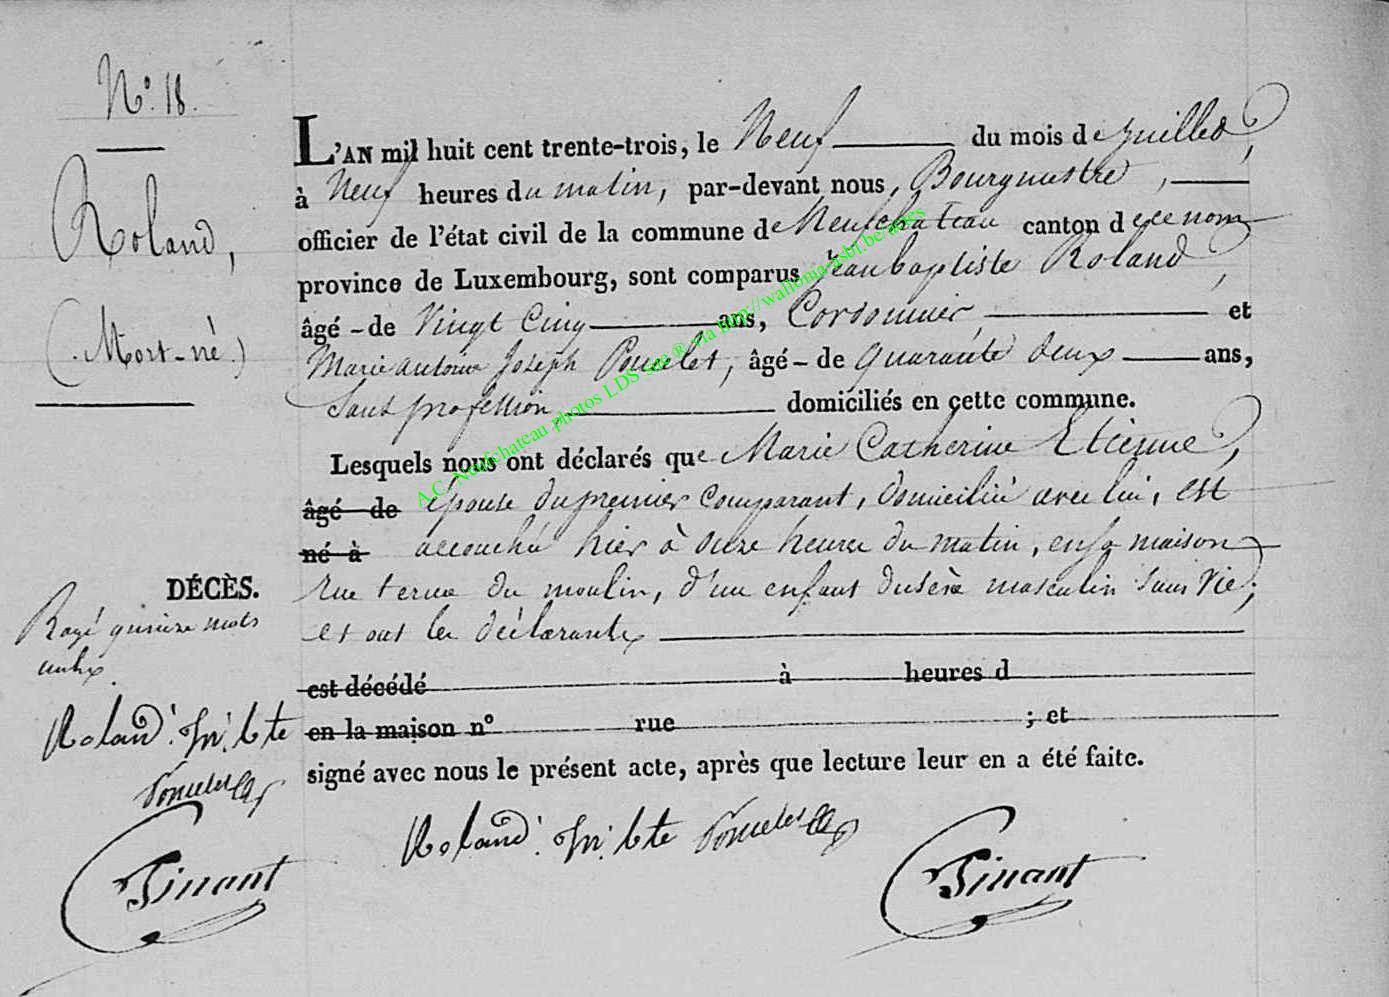 N° 18.
Roland,
(Mort-né.)
L'AN mil huit cent trente-trois, le Neuf du mois de Juillet,
à Neuf heures du matin, par-devant nous, Bourgmestre,
officier de l'état civil de la commune de Neufchateau canton de ce nom
province de Luxembourg, sont comparus Jean baptiste Roland,
âgé - de Vingt Cinq ans, Cordonnier, et
Marie antoine Joseph Poncelet, âgé - de quarante deux ans,
Sans profession domiciliés en cette commune.
Lesquels nous ont déclarés que Marie Catherine Etienne,
âgé de épouse du premier Comparant, domicilié avec lui, est
né à accouché hier à onze heures du matin, en sa maison
rue terue du moulin, d'un enfant du sèxe masculin sans vie;
et ont les déclarants
est décédé à heures d
en la maison n° rue ; et
signé avec nous le présent acte, après que lecture leur en a été faite.
DÉCÈS.
Rayé quinze mots
nuls
Roland
Poncelet
Tinant
Roland Poncelet
Tinant
A.C. Neufchateau photos LDS sne ® via http://wallonia-asbl.be/actes